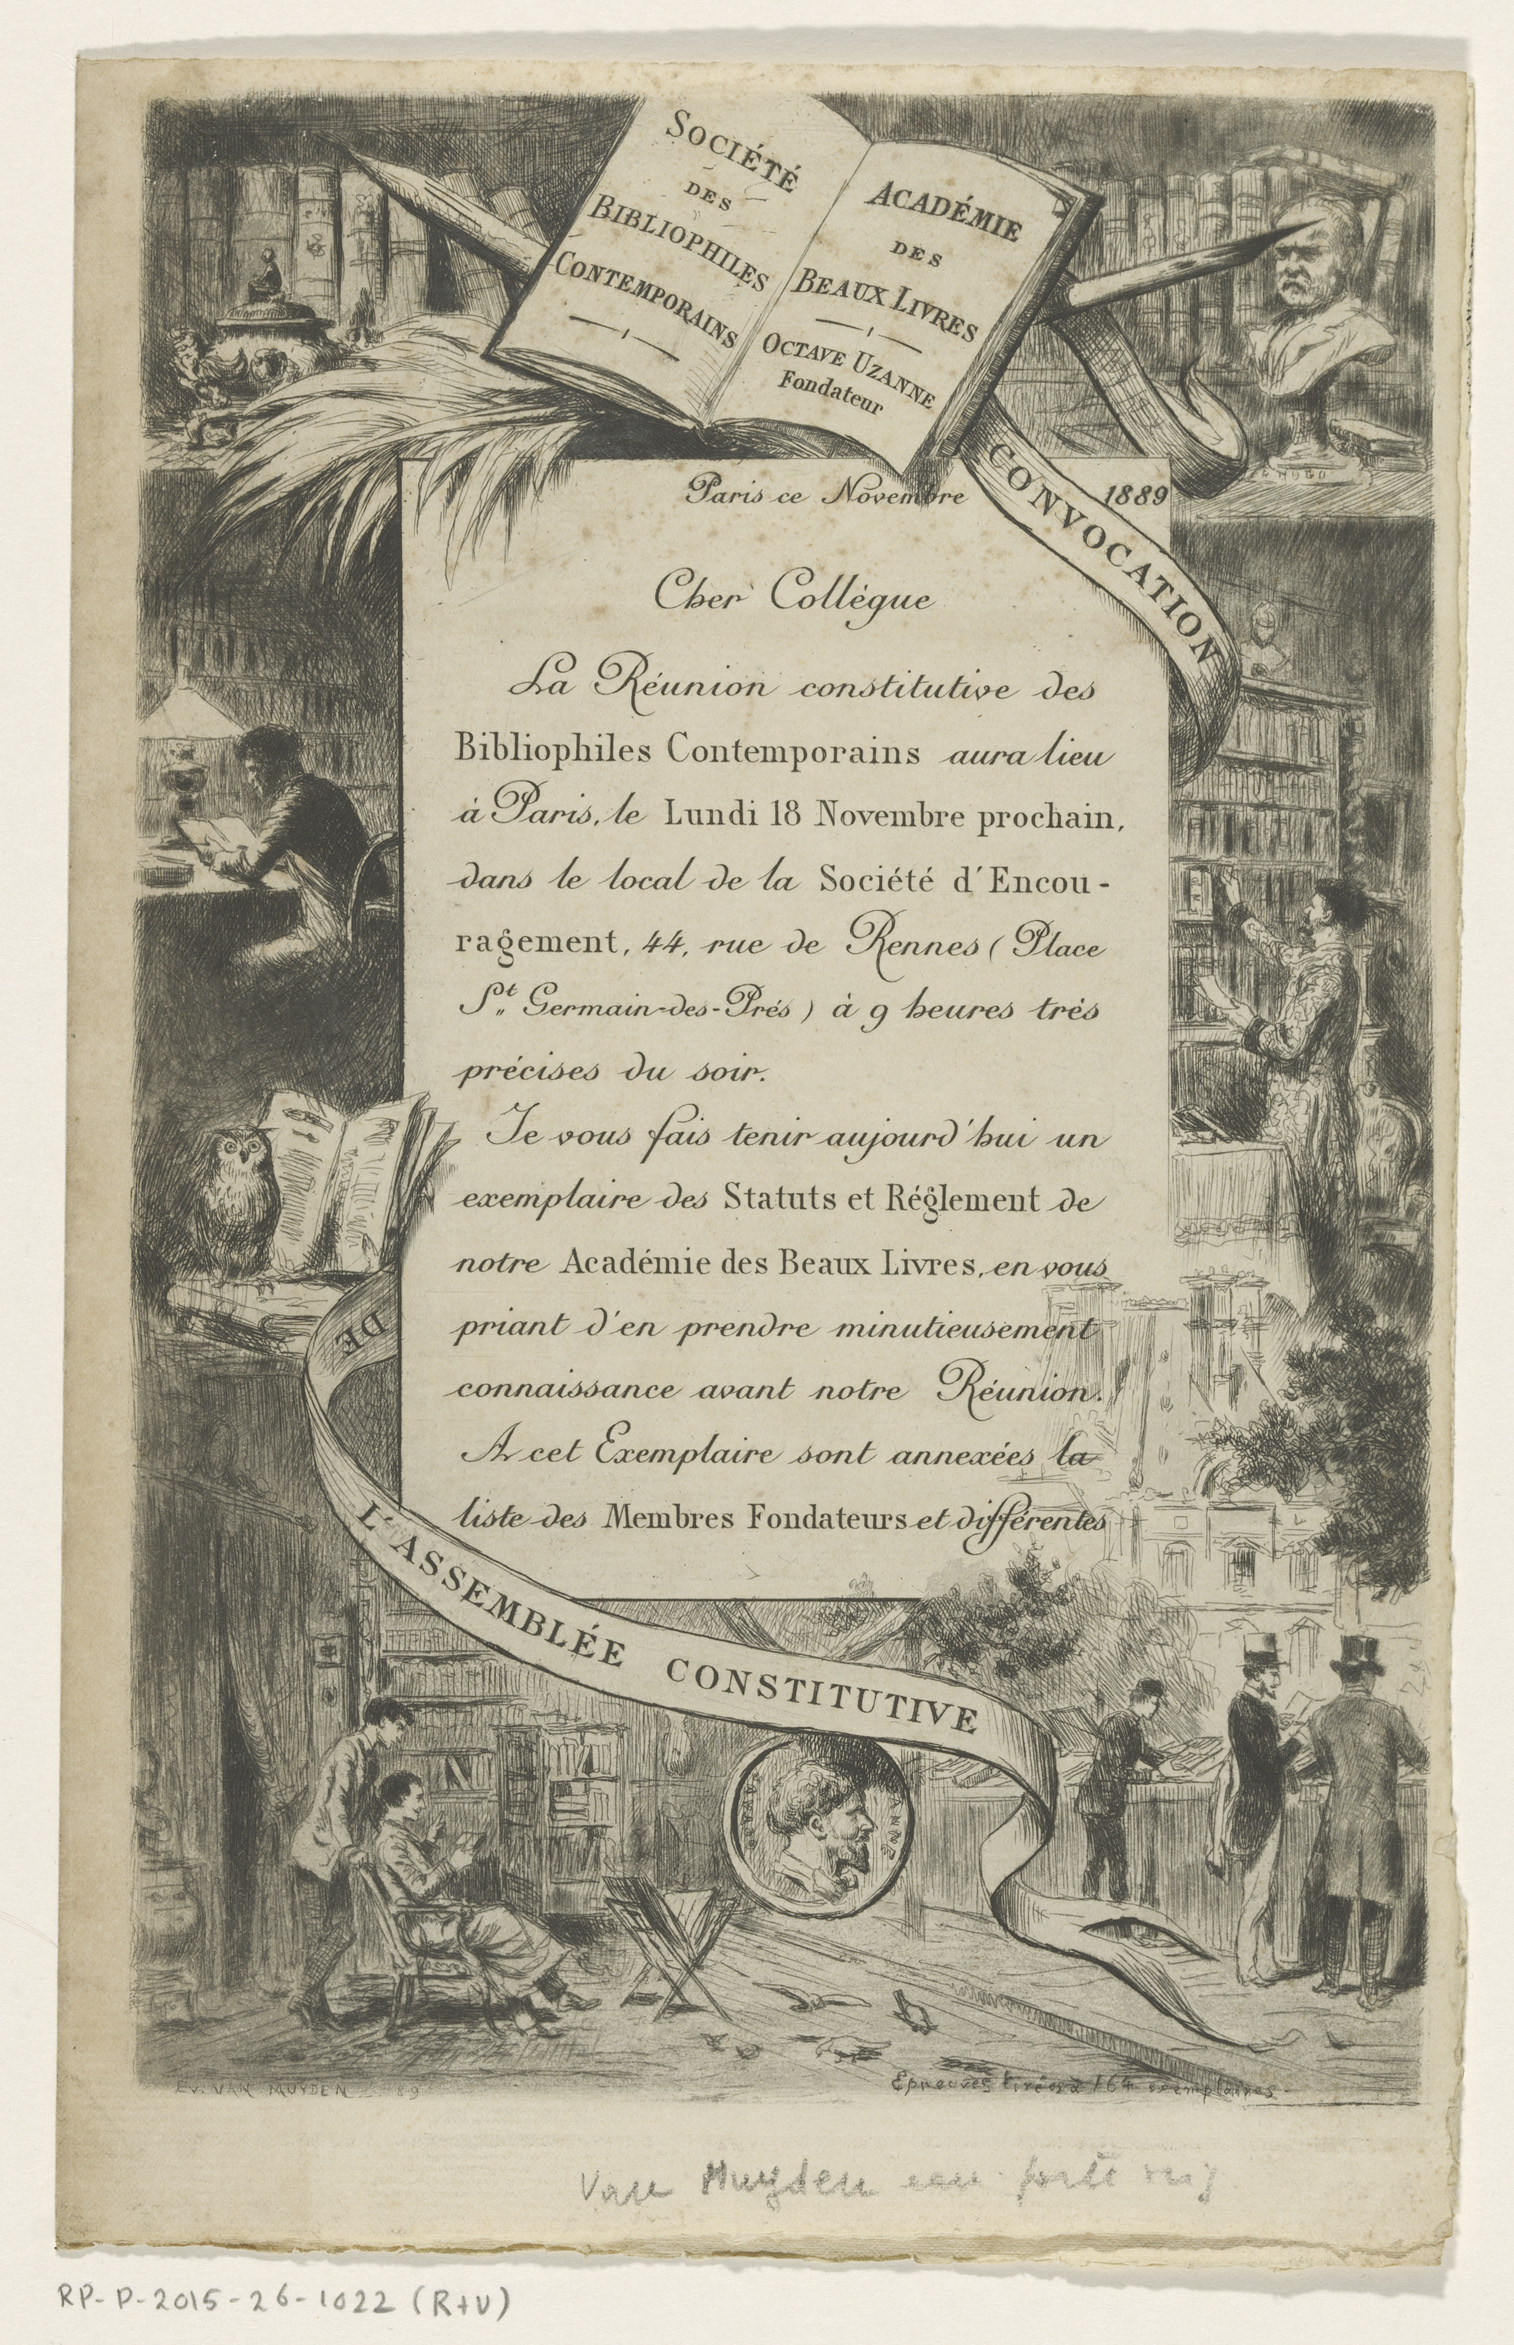 SOCIÉTÉ
DES
BIBLIOPHILES
CONTEMPORAINS
ACADÉMIE
DES
BEAUX LIVRES
OCTAVE UZANNE
Fondateur
V. HUGO
CONVOCATION
Paris ce Novembre 1889
Cher Collégue
La Réunion constitutive des
Bibliophiles Contemporains aura lieu
à Paris, le Lundi 18 Novembre prochain,
dans le local de la Société d'Encou-
ragement, 44, rue de Rennes (Place
St. Germain-des-Prés) à 9 heures trés
précises du soir.
Je vous fais tenir aujourd'hui un
exemplaire des Statuts et Réglement de
notre Académie des Beaux Livres, en vous
priant d'en prendre minutieusement
connaissance avant notre Réunion.
A cet Exemplaire sont annexées la
liste des Membres Fondateurs et différentes
DE
L'ASSEMBLÉE CONSTITUTIVE
EV. VAN MUYDEN 89
Epreuves tirées à 164 exemplaires
Van Muyden eau forte
RP-P-2015-26-1022 (R+V)